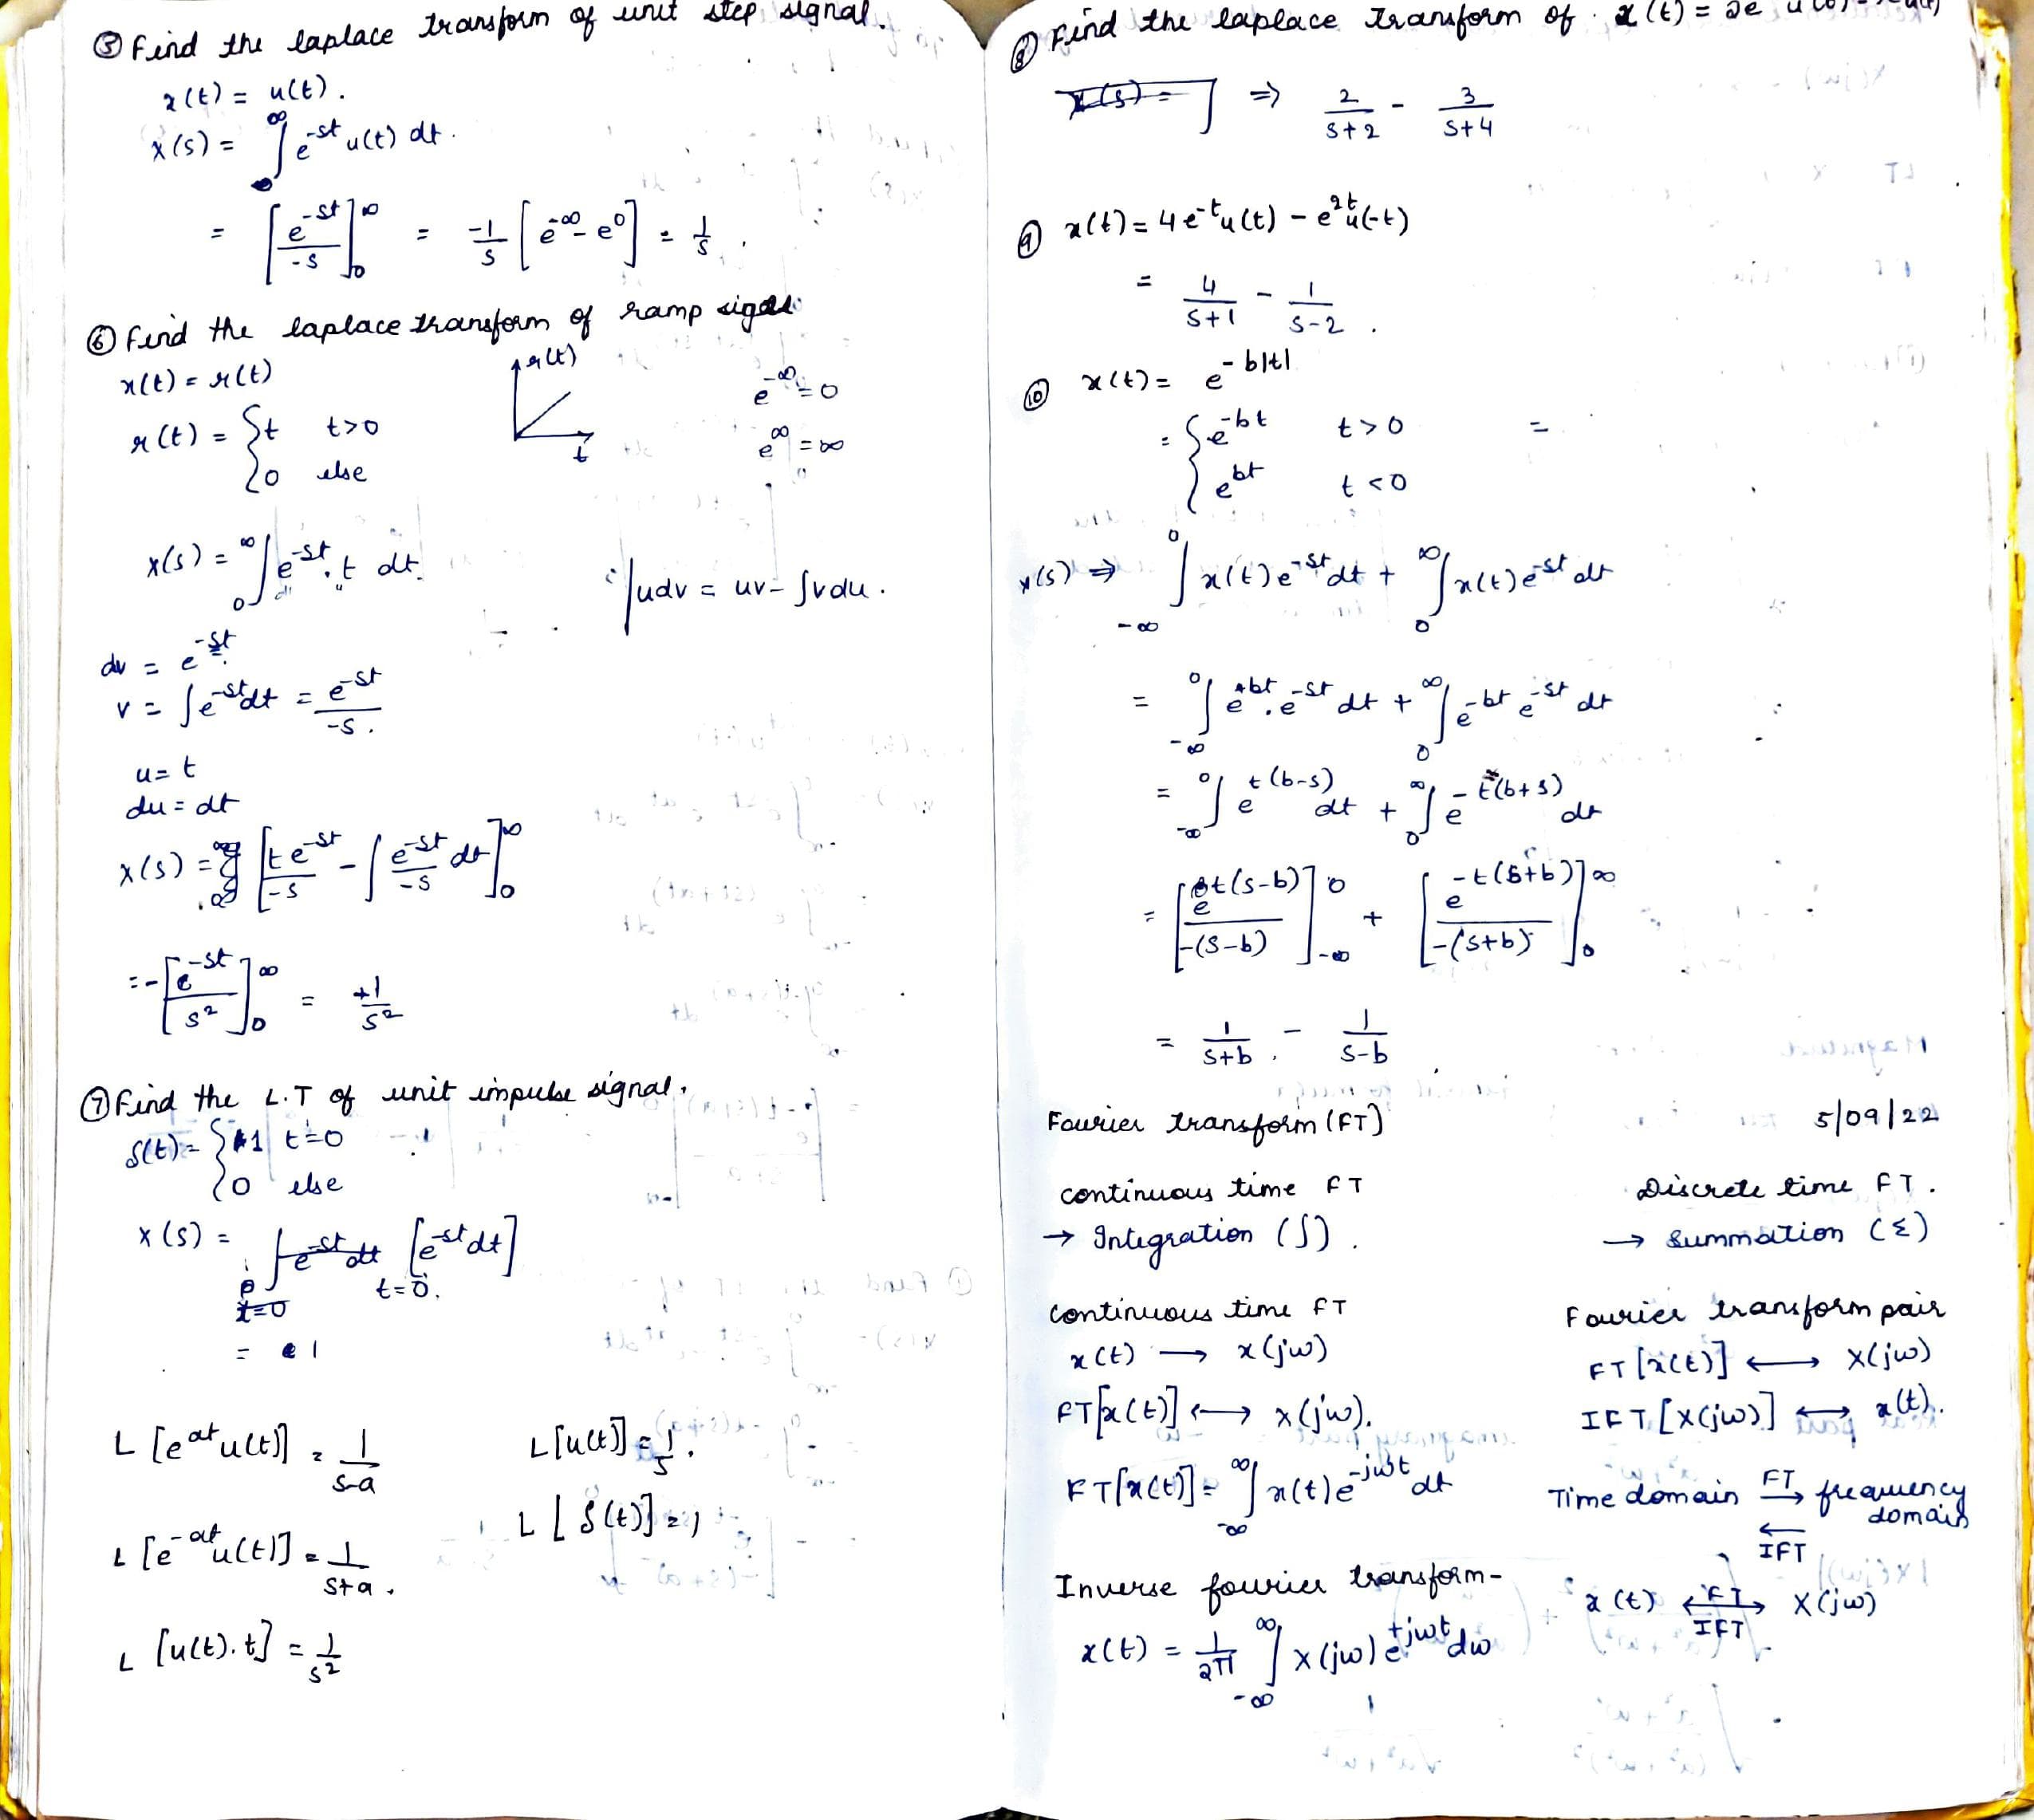 ⑤ Find the laplace transform of unit step signal.
x(t) = u(t).
x(s) = ∫₀^∞ e^-st u(t) dt.
= [e^-st / -s]₀^∞ = -1/s [e^-∞ - e^0] = 1/s.
⑥ Find the laplace transform of ramp signal
x(t) = r(t)
r(t)
t
e^-∞ = 0
r(t) = { t t>0
e^∞ = ∞
0 else
x(s) = ∫₀^∞ e^-st . t dt.
∵ ∫udv = uv - ∫vdu.
dv = e^-st
v = ∫e^-st dt = e^-st / -s.
u = t
du = dt
x(s) = [t e^-st / -s - ∫ e^-st / -s dt]₀^∞
= -[e^-st / s²]₀^∞ = +1/s²
⑦ Find the L.T of unit impulse signal.
δ(t) = { 1 t=0
0 else
x(s) = [e^-st dt] t=0.
= 1
L [e^at u(t)] = 1/s-a
L[u(t)] = 1/s.
L [e^-at u(t)] = 1/s+a.
L [δ(t)] = 1
L [u(t).t] = 1/s²
⑧ Find the laplace transform of x(t) = 2e
x(s) = ∫ ⇒ 2/s+2 - 3/s+4
⑨ x(t) = 4e^-t u(t) - e^2t u(-t)
= 4/s+1 - 1/s-2.
⑩ x(t) = e^-b|t|
= { e^-bt t>0 =
e^bt t<0
x(s) ⇒ ∫_-∞^0 x(t) e^-st dt + ∫₀^∞ x(t) e^-st dt
= ∫_-∞^0 e^+bt . e^-st dt + ∫₀^∞ e^-bt e^-st dt
= ∫_-∞^0 e^t(b-s) dt + ∫₀^∞ e^-t(b+s) dt
= [e^t(s-b) / -(s-b)]_-∞^0 + [e^-t(s+b) / -(s+b)]₀^∞
= 1/s+b - 1/s-b
Fourier transform (FT)
5/09/22
continuous time FT
Discrete time FT.
→ Integration (∫).
→ Summation (Σ)
continuous time FT
Fourier transform pair
x(t) → x(jω)
FT [x(t)] ⟷ X(jω)
FT[x(t)] ⟷ x(jω).
IFT [X(jω)] ⟷ x(t).
FT[x(t)] = ∫_-∞^∞ x(t) e^-jωt dt
Time domain FT→ frequency domain
←IFT
Inverse fourier transform-
x(t) ⟷ X(jω)
FT
IFT
x(t) = 1/2π ∫_-∞^∞ x(jω) e^+jωt dω